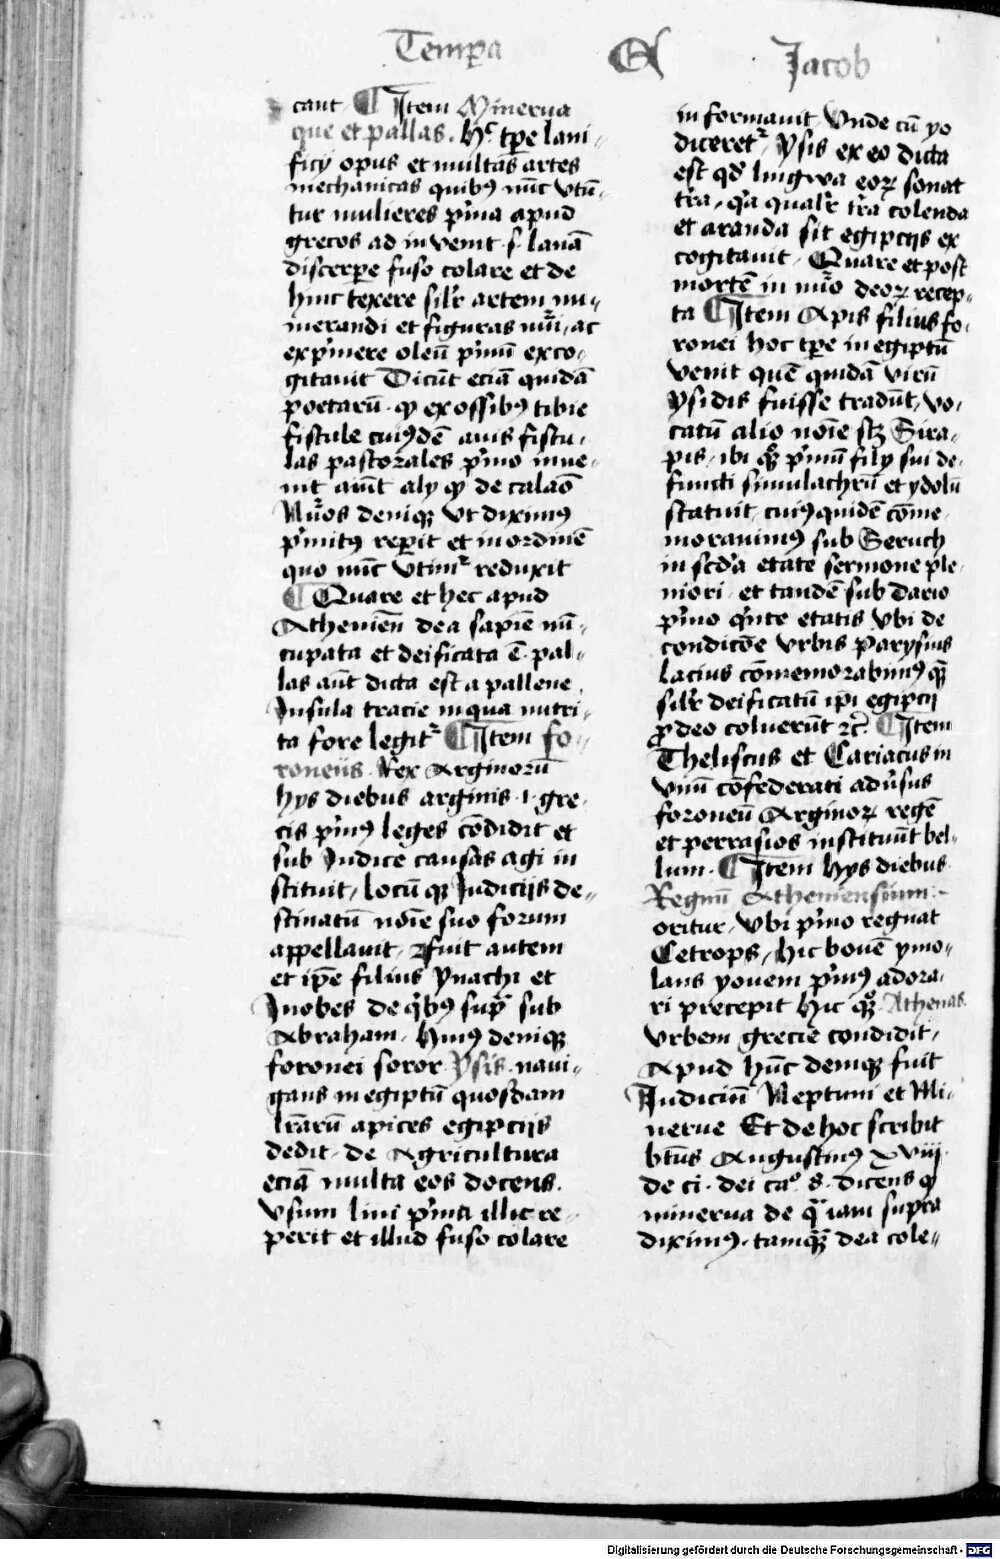 Tempa Et Jacob
cant. ¶ Item Minerua
que et pallas. Hec tpe lani-
ficij opus et multas artes
mechanicas quibꝰ nūc vtū-
tur mulieres pͥma apud
grecos ad inuenit. s. lanā
discerpe fuso colare et de
hinc texere silr artem nu-
merandi et figuras nūi, ac
expͥmere oleū pͥmū exco-
gitauit Dicūt eciā quidā
poetarū. ꝙ ex ossibꝰ tibie
fistule cuiꝰdē auis fistu-
las pastorales pͥmo inue-
nit aiūt alij ꝙ de calamo
Nūos deniqꝫ vt diximꝰ
pͥmitꝰ repit et in ordinē
quo nūc vtimͬ reduxit
¶ Quare et hec apud
Atheniēn dea sapiē nū-
cupata et deificata ē. pal-
las aūt dicta est a pallene
Insula tracie in qua nutri-
ta fore legitͬ ¶ Item fo-
roneus. Rex Arginorū
hys diebus arginis .i. gre-
cis pͥmꝰ leges cōdidit et
sub Judice causas agi in
stituit, locū qꝫ Judicijs de-
stinatū noīe suo forum
appellauit, fuit autem
et ipē filius ynachi et
Inobes de qͥbꝰ supͣ sub
Abraham. Huiꝰ deniqꝫ
foronei soror ysis naui-
gans in egiptū quosdam
lrārū apices egipcijs
dedit. de Agricultura
eciā multa eos docens.
vsum lini pͥmū illic re-
perit et illud fuso colare
in formauit Vnde cū yo
diceretͬ, ysis ex eo dicta
est qd lingwa eoꝝ sonat
tra, qͣ qualr tra colenda
et aranda sit egipcijs ex
cogitauit, Quare et post
mortē in nūo deoꝝ recep-
ta ¶ Item Apis filius fo-
ronei hoc tpe in egiptū
venit quē quidā virū
ysidis fuisse tradūt, vo-
catū alio noīe scꝫ Sira-
pis, ibi qͣꝫ pͥmū filij sui de-
functi simulachrū et ydolū
statuit, cuiꝰ quidē cōme-
morauimꝰ sub Seruch
in scda etate sermone ple-
niori. et tandē sub dario
pͥmo qͥnte etatis vbi de
condicōe vrbis Parysius
lacius cōmemorabimꝰ qͣꝫ
silr deificatū ipī egipcij
ꝓ deo coluerūt ⁊c̄. ¶ Item
Theliscus et Cariacus in
vnū cōfederati aduͥsus
foroneū Arginoꝝ regē
et perrasios instituūt bel-
lum. ¶ Item hys diebus
Regnū Atheniensium.
oritur, vbi pͥmo regnat
Cetrops, hic bouē ymo-
lans youem pͥmꝰ adora-
ri precepit hic qͦꝫ Athenas
vrbem grecie condidit,
Apud hūc deniqꝫ fuit
Judiciū Neptuni et Mi-
nerue Et de hoc scribit
btūs Augustinꝰ xviij.
de ci. dei caᵒ 8. dicens ꝙ
minerua de qͣ iam supra
diximꝰ. tamqͣꝫ dea cole-
Digitalisierung gefördert durch die Deutsche Forschungsgemeinschaft - DFG